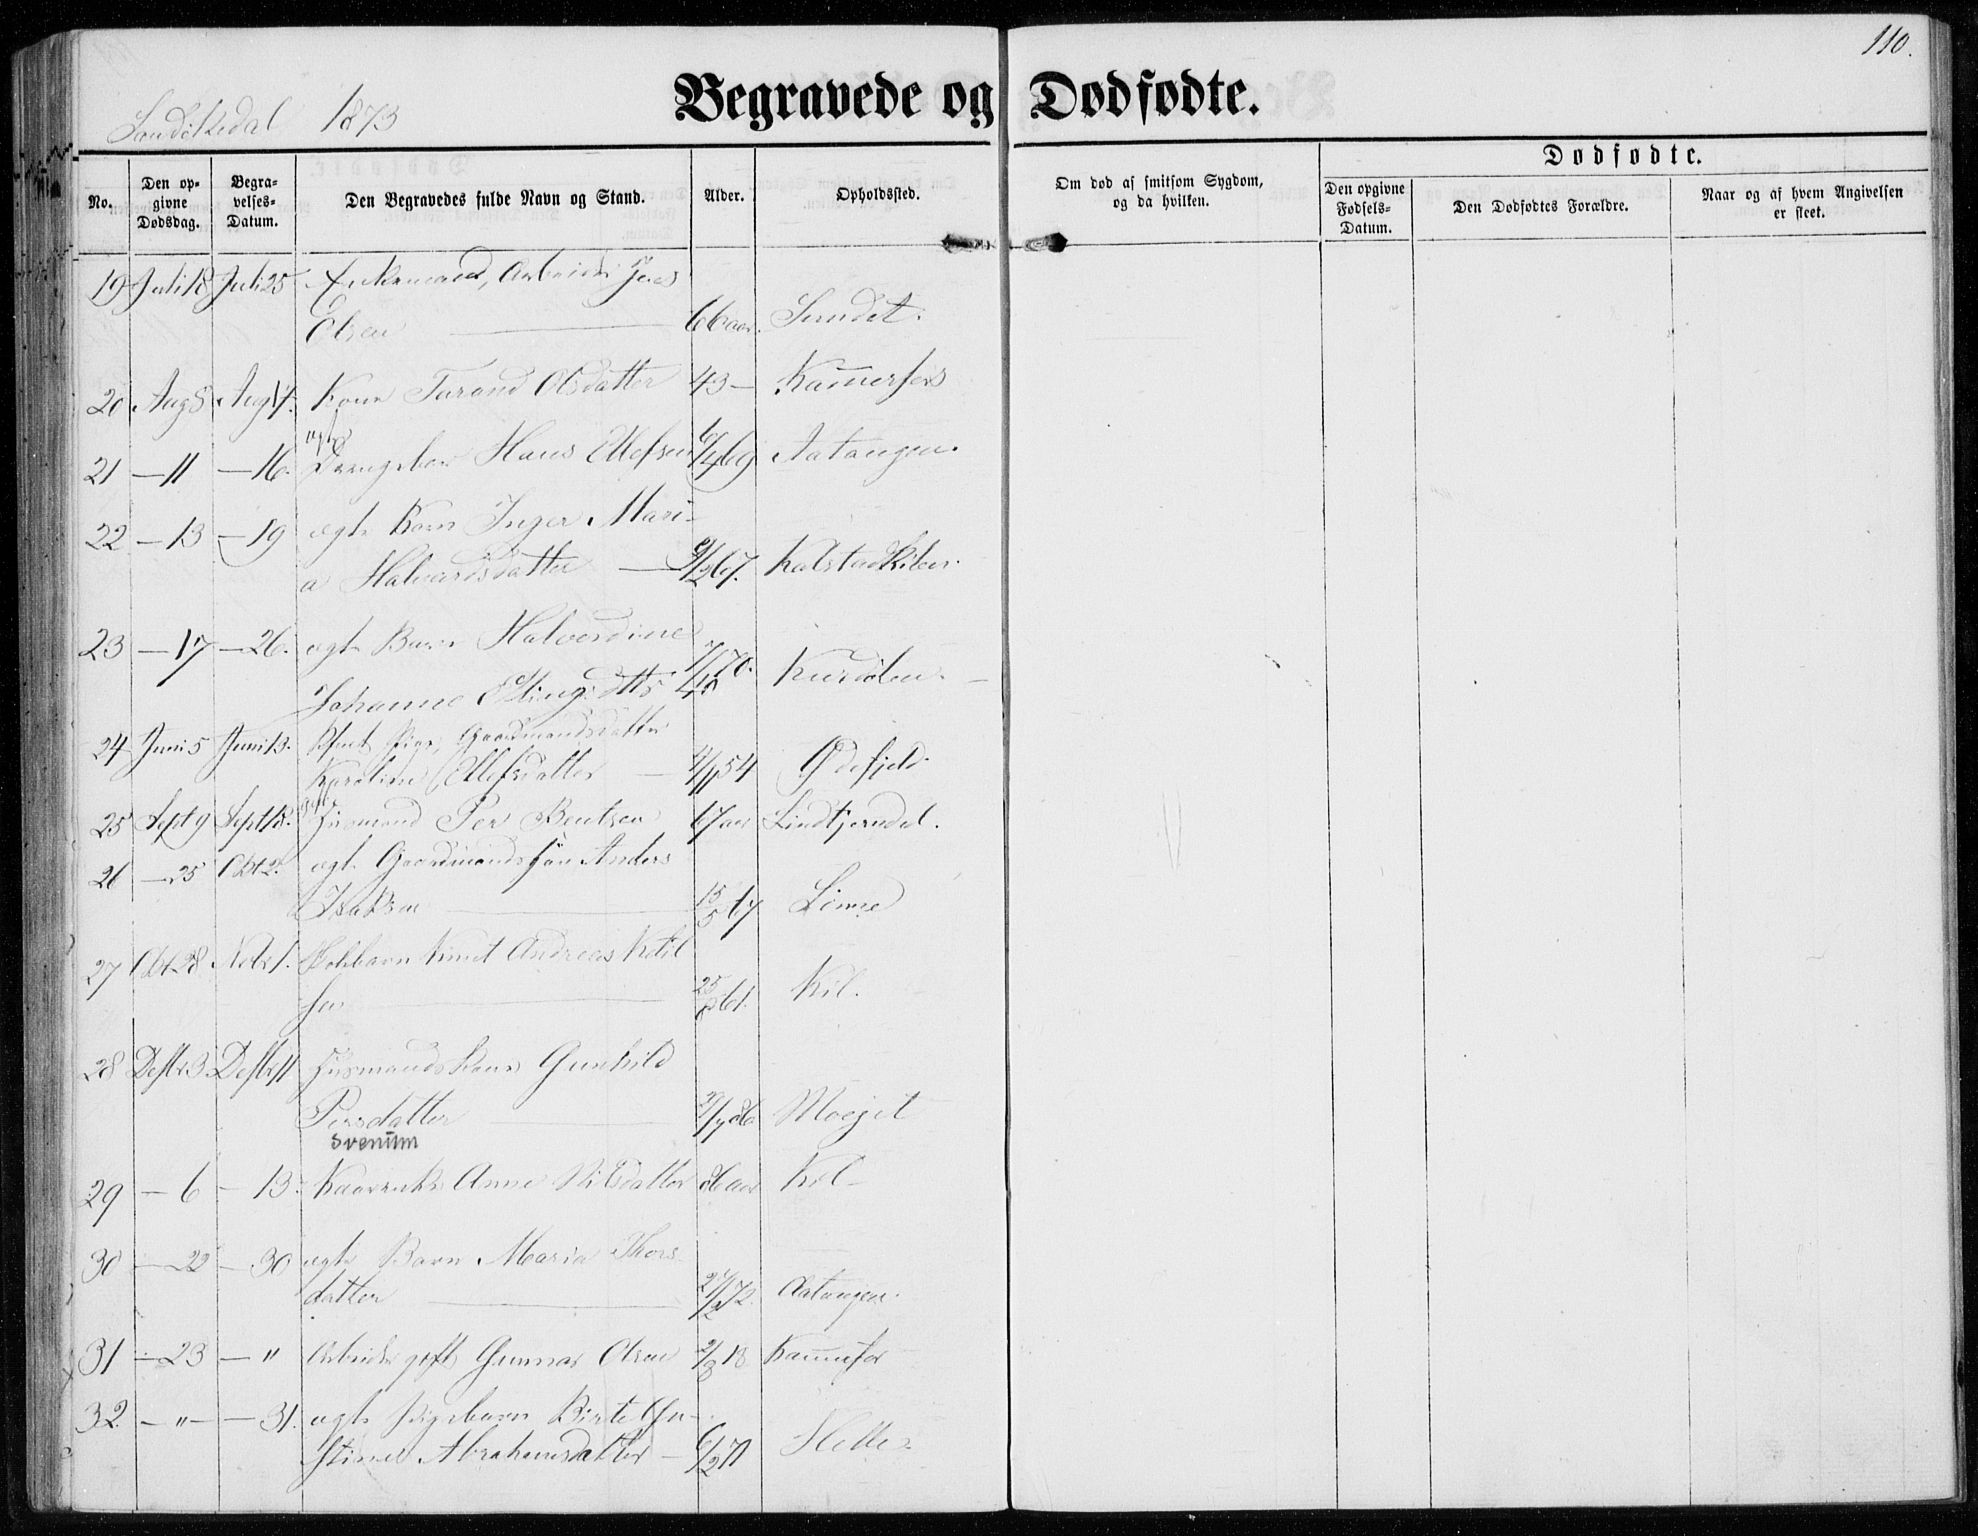 110.
Sandøkedal 1873
Begravede og Dødfødte.
No.
Den op-
givne
Dødsdag.
Begra-
velses-
Datum.
Den Begravedes fulde Navn og Stand.
Alder.
Opholdssted.
Om død af smitsom Sygdom,
og da hvilken.
Dødfødte.
Den opgivne
Fødsels-
Datum.
Den Dødfødtes Forældre.
Naar og af hvem Angivelsen
er skeet.
19 Juli 18 Juli 25 Enkemand, Arbeider Jens
Olsen 66 aar. Sundet.
20 Aug 8 Aug 14. Kone Torand Olsdatter 43 — Kammerfos
ægte
21 — 11 — 16. Drengebarn Hans Ellefsen 6/4 69 Aatangen.
22 — 13 — 19 ægte Barn Inger Mari-
a Halvardsdatter — 9/2 67. Kalstadkilen.
23 — 17 — 26. ægte Barn Halvordine
Johanne Ellingsdttr 70. Kurdølen.
24 Juni 5 Juni 13. Pige, Gaardmandsdatter
Karoline Ellefsdatter — 4/11 54 Ødefjeld.
gift
25 Sept 9 Sept 18. Husmand Per Bentsen 67 aar Lindtjerndal.
26 — 25 Okt 2. ægte Gaardmandssøn Anders
Isaksen 15/5 67 Linne
27 Okt 28 Nobr 1. Barn Knut Andreas Ketil
sen 25/ 61. Kil.
28 Desbr 3 Desbr 11 Husmandskone Gunhild
Persdatter 29/7 86 Moejet
Svenum
29 — 6 — 13. Kaarenke Anne Nilsdatter 86 aar Kil
30 — 22 — 30 ægte Barn Maria Thors
datter 27/2 72. Aatangen.
31 — 23 — " Arbeider gift Gunnar Olsen 2/8 18 Kammerfos
32 — " — — 31. ægte Pigebarn Birte Chri-
stine Abrahamsdatter — 6/2 71 Helle